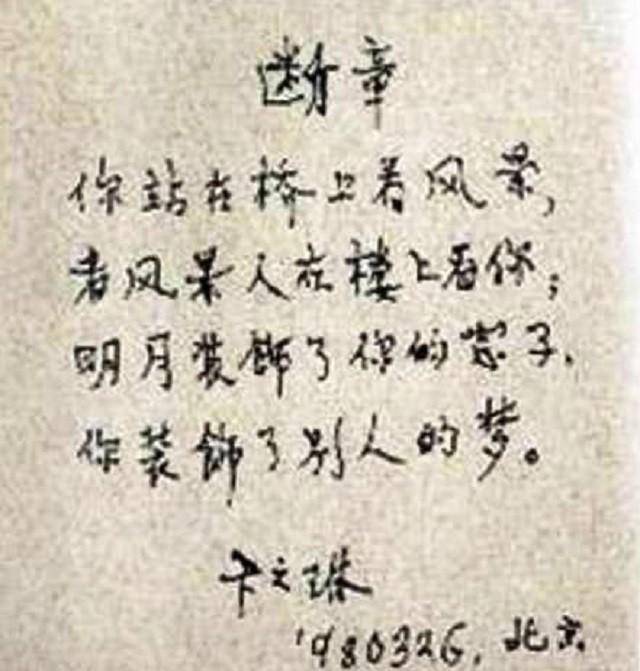 断章
你站在桥上看风景,
看风景人在楼上看你;
明月装飾了你的窗子,
你装飾了别人的梦。
卞之琳
1980326, 北京